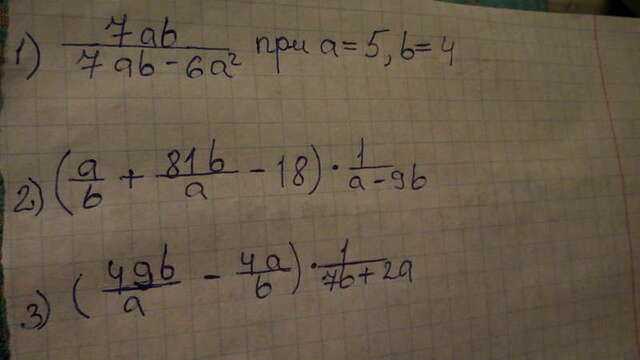 1) 7ab / 7ab - 6a² при a = 5, b = 4
2) (a/b + 81b/a - 18) · 1/a - 9b
3) (49b/a - 4a/b) · 1/7b + 2a